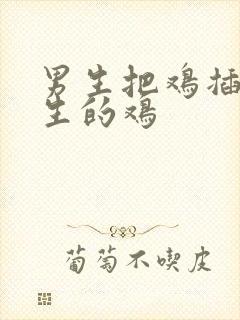 男生把鸡插
生的鸡
葡萄不喫皮